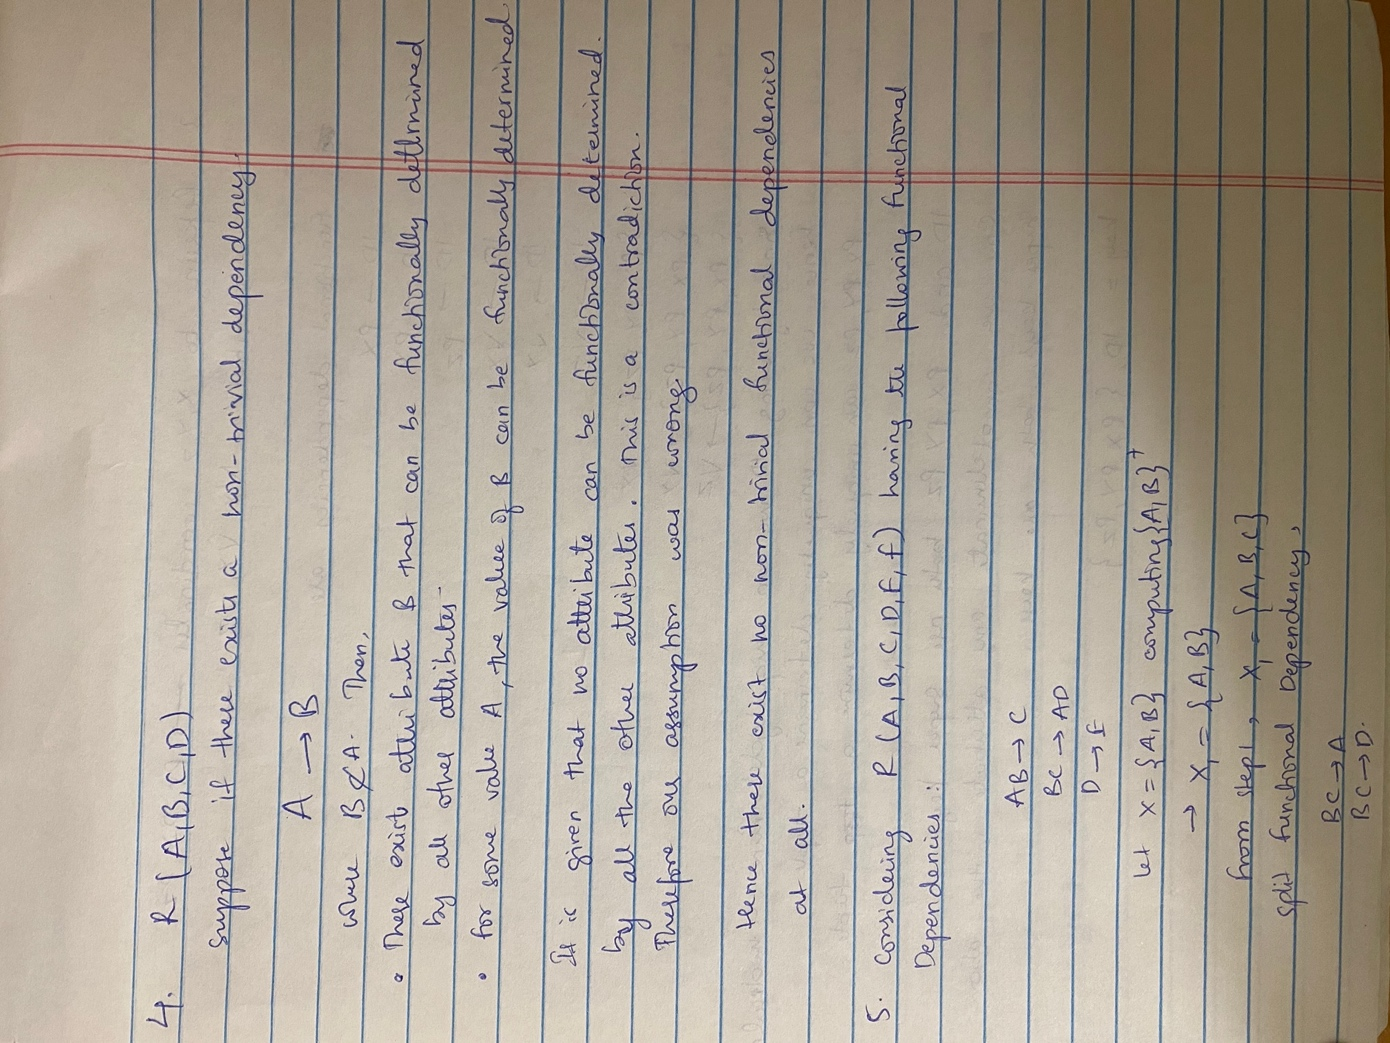 4. R = {A,B,C,D}
Suppose if there exists a non-trivial dependency.
A → B
where B ⊄ A. Then,
• There exist attribute B that can be functionally determined
by all other attributes.
• for some value A, the value of B can be functionally determined
It is given that no attribute can be functionally determined.
by all the other attributes. This is a contradiction.
Therefore our assumption was wrong.
Hence there exist no non-trivial functional dependencies
at all.
5. Considering R (A,B,C,D,E,F) having the following functional
Dependencies:
AB → C
BC → AD
D → E
let X = {A,B} computing {A,B}⁺
→ X₁ = {A,B}
from step 1, X₁ = {A,B,C}
split functional Dependency,
BC → A
BC → D.